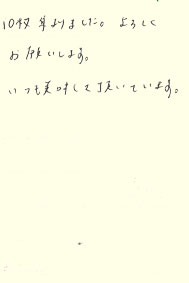 10枚集まりました。よろしく
お願いします。
いつも美味して頂いています。